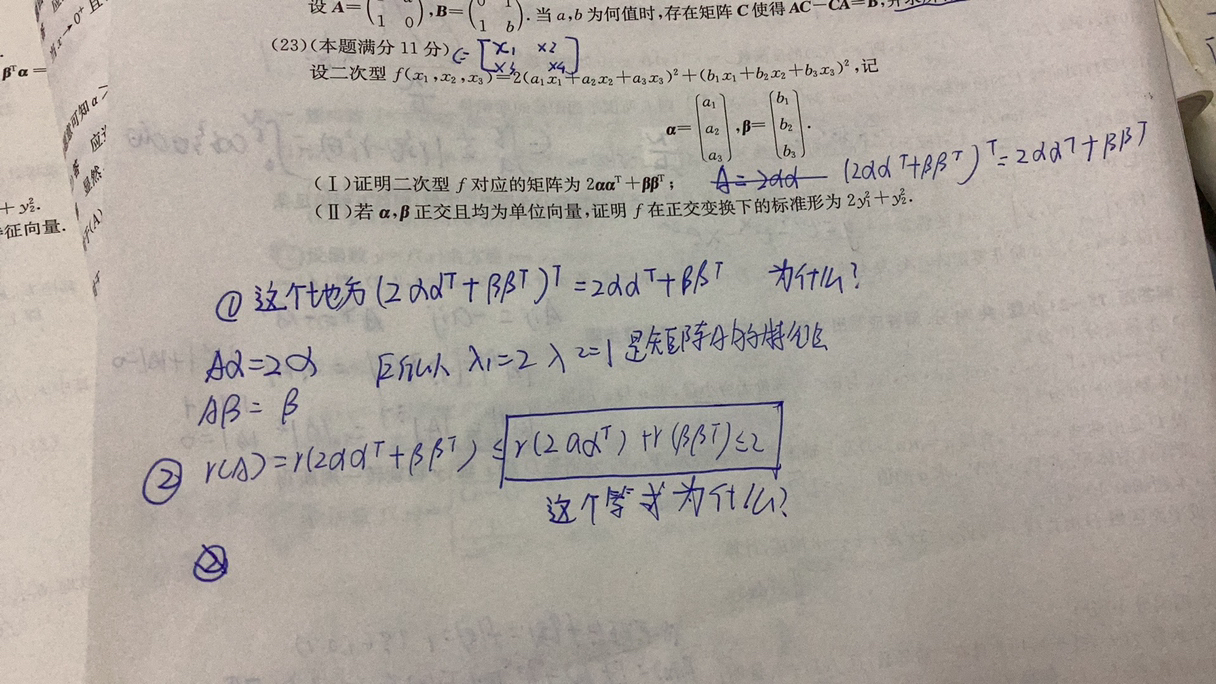 设 A=( 1 0 ),B=( 1 b ).当 a,b 为何值时,存在矩阵 C 使得 AC-CA=B,
(23)(本题满分 11 分) C= [x₁ x2
x3 x4]
设二次型 f(x₁,x₂,x₃)=2(a₁x₁+a₂x₂+a₃x₃)²+(b₁x₁+b₂x₂+b₃x₃)²,记
α=(a₁ a₂ a₃),β=(b₁ b₂ b₃).
(Ⅰ)证明二次型 f 对应的矩阵为 2ααᵀ+ββᵀ; A=2αα (2ααᵀ+ββᵀ)ᵀ=2ααᵀ+ββᵀ
(Ⅱ)若 α,β 正交且均为单位向量,证明 f 在正交变换下的标准形为 2y₁²+y₂².
① 这个地方 (2ααᵀ+ββᵀ)ᵀ=2ααᵀ+ββᵀ 为什么?
Aα=2α 所以 λ₁=2 λ2=1 是矩阵A的特征值
Aβ=β
② r(A)=r(2ααᵀ+ββᵀ)≤r(2ααᵀ)+r(ββᵀ)≤2
这个等式为什么?
②
βᵀα=
+y₂².
特征向量.